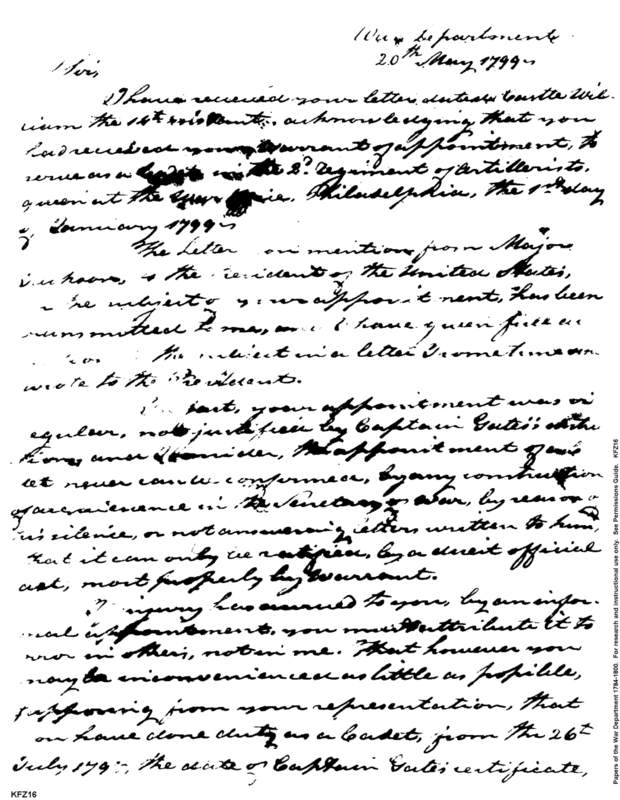 War Department
20th May 1799
Sir,
I have received your letter, dated Castle Wil-
liam the 14th instant, acknowledging that you
had received your warrant of appointment, to
serve as a Cadet in the 2d. regiment of Artillerists,
given at the War Office, Philadelphia, the 1st day
of January 1799
The letter you mention, from Major
Jackson, to the President of the United States,
on the subject of your appointment, has been
transmitted to me, and I have given
the subject in a letter I sometime
wrote to the President.
In fact, your appointment was ir
regular, not justified by Captain Gates's
and consider, the appointment of a Ca
det never can be confirmed, by any construction
of acquiescence in the Secretary of War, by reason of
his silence, or not answering letters written to him,
that it can only be ratified, by a direct official
act, most properly by Warrant.
If injury has accrued to you, by an infor-
mal appointment, you must attribute it to
error in others, not in me. That however you
may be inconvenienced as little as possible,
supposing from your representation, that
you have done duty as a Cadet, from the 26t
July 179 the date of Captain Gates' certificate,
KFZ16
Papers of the War Department 1784-1800. For research and instructional use only. See Permissions Guide. KFZ16